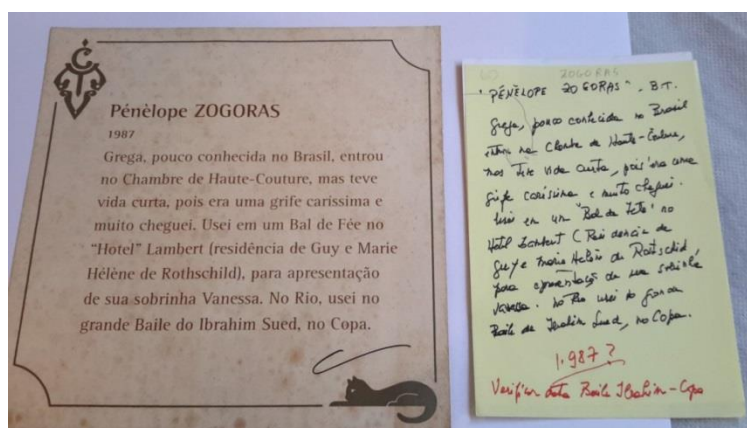 Pénèlope ZOGORAS
1987
Grega, pouco conhecida no Brasil, entrou
no Chambre de Haute-Couture, mas teve
vida curta, pois era uma grife caríssima e
muito cheguei. Usei em um Bal de Fée no
“Hotel” Lambert (residência de Guy e Marie
Hélène de Rothschild), para apresentação
de sua sobrinha Vanessa. No Rio, usei no
grande Baile do Ibrahim Sued, no Copa.
ZOGORAS
"PÉNÈLOPE ZOGORAS". B.T.
Grega, pouco conhecida no Brasil
na de Haute-Couture,
mas teve vida curta, pois era uma
grife caríssima e muito cheguei.
Usei em um "Bal de Fete" no
Hotel Lambert (Residencia de
Guy e Marie Helène de Rothschild,
para apresentação de sua sobrinha
Vanessa. No Rio usei no grande
Baile de Ibrahim Sued, no Copa.
1.987?
Verificar data Baile Ibrahim-Copa